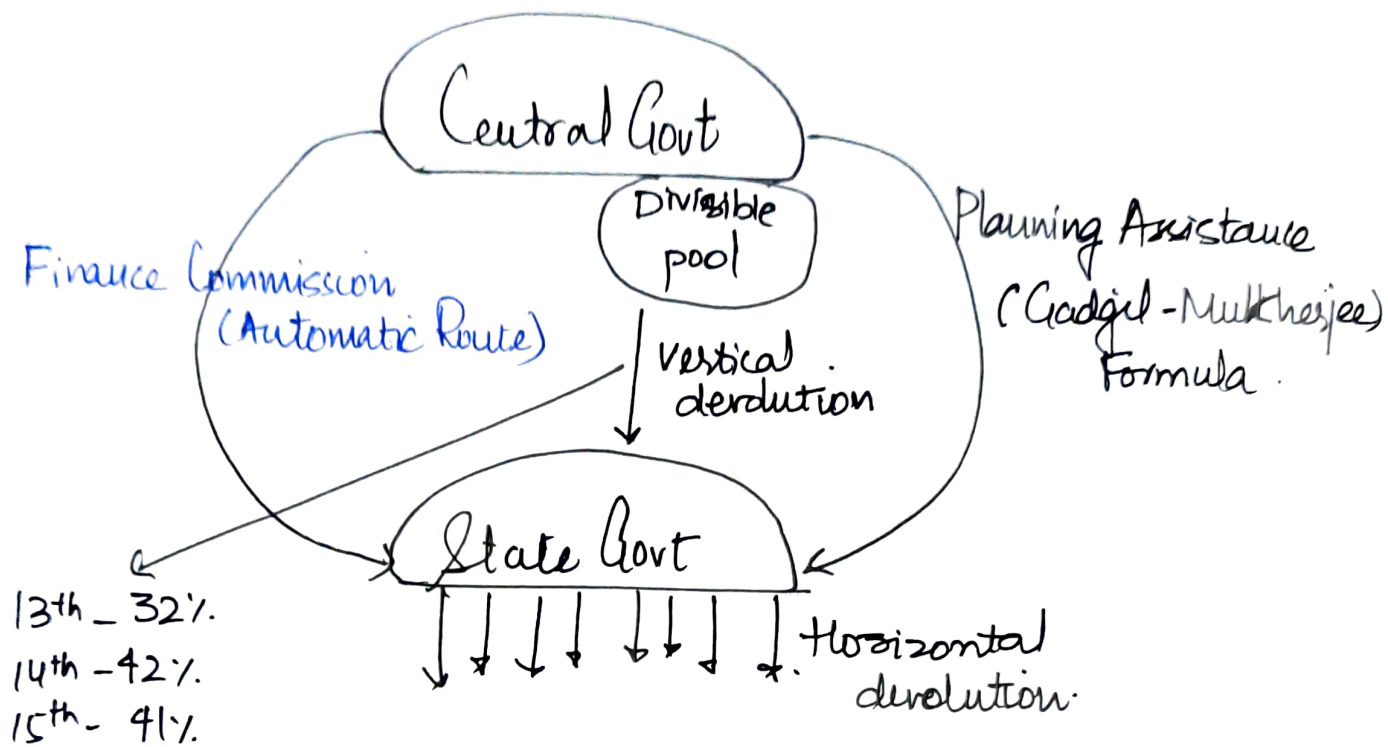 Central Govt
Divisible
pool
Finance Commission
(Automatic Route)
Planning Assistance
(Gadgil-Mukherjee)
Formula.
Vertical
devolution
State Govt
13th - 32%.
14th - 42%.
15th - 41%
Horizontal
devolution.